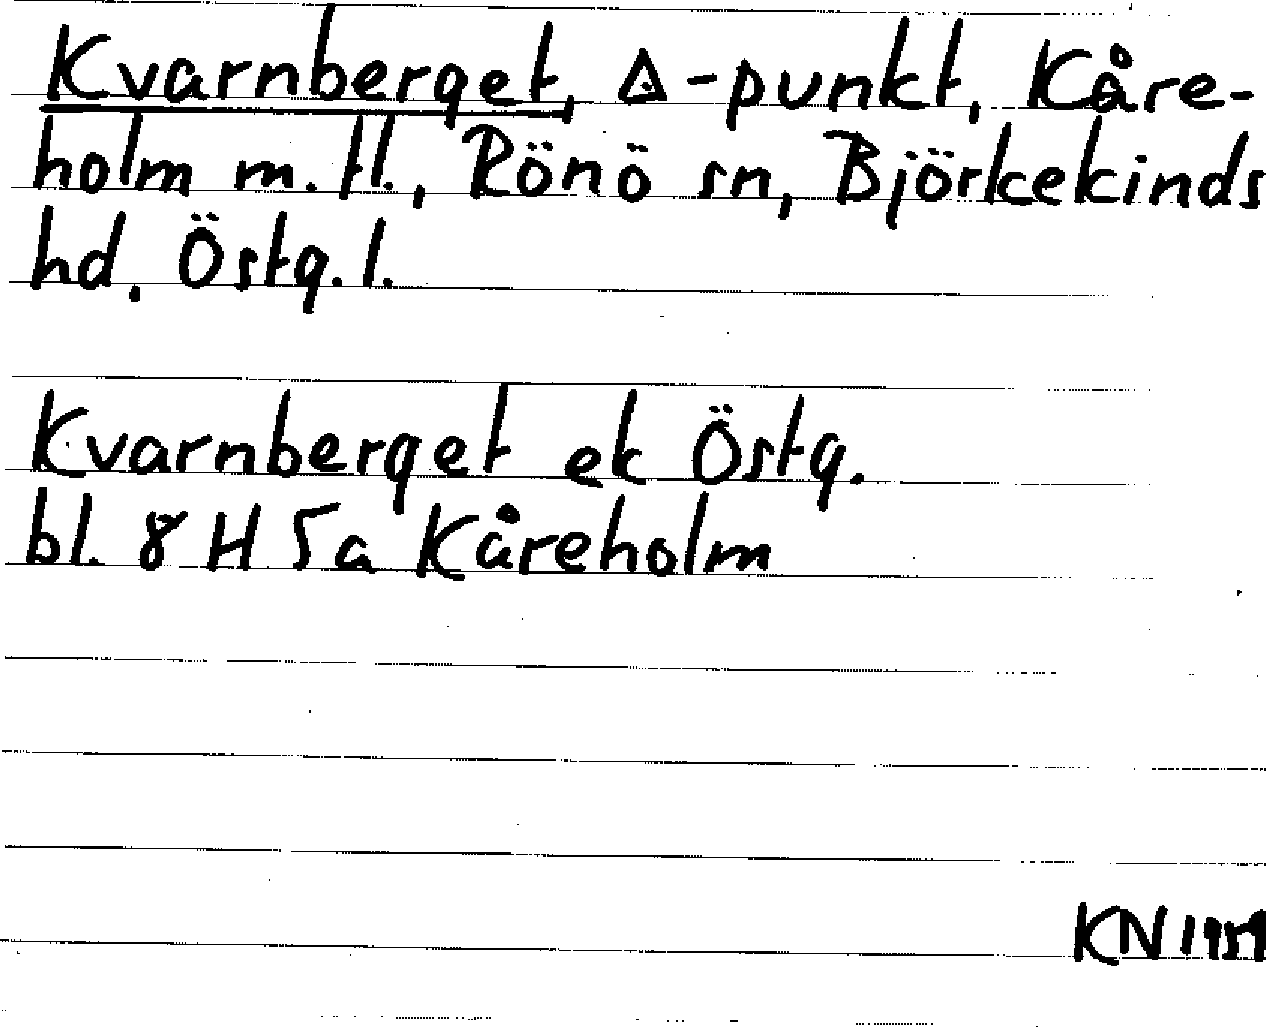 Kvarnberget, △-punkt, Kåre-
holm m. fl., Rönö sn, Björkekinds
hd, Östg. l.
Kvarnberget ek Östg.
bl. 8 H 5a Kåreholm
KN